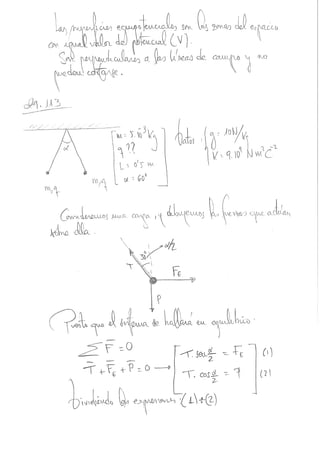 Las superficies equipotenciales son las zonas del espacio
con igual valor de potencial (V).
Son perpendiculares a las líneas de campo y no
pueden cortarse.
29. 113
α
m,q
m,q
m = 5·10³ Kg
q ??
L = 0'5 m
α = 60º
Datos: g = 10 N/Kg
K = 9·10⁹ Nm²C⁻²
Consideremos una carga, y dibujemos las fuerzas que actúan
sobre ella.
α/2
30º
T
F_E
P
Puesto que el sistema se hallará en equilibrio:
ΣF̄ = 0
T̄ + F̄_E + P̄ = 0 →
T · sen α/2 = F_E (1)
T · cos α/2 = P (2)
Dividiendo las expresiones (1)÷(2)